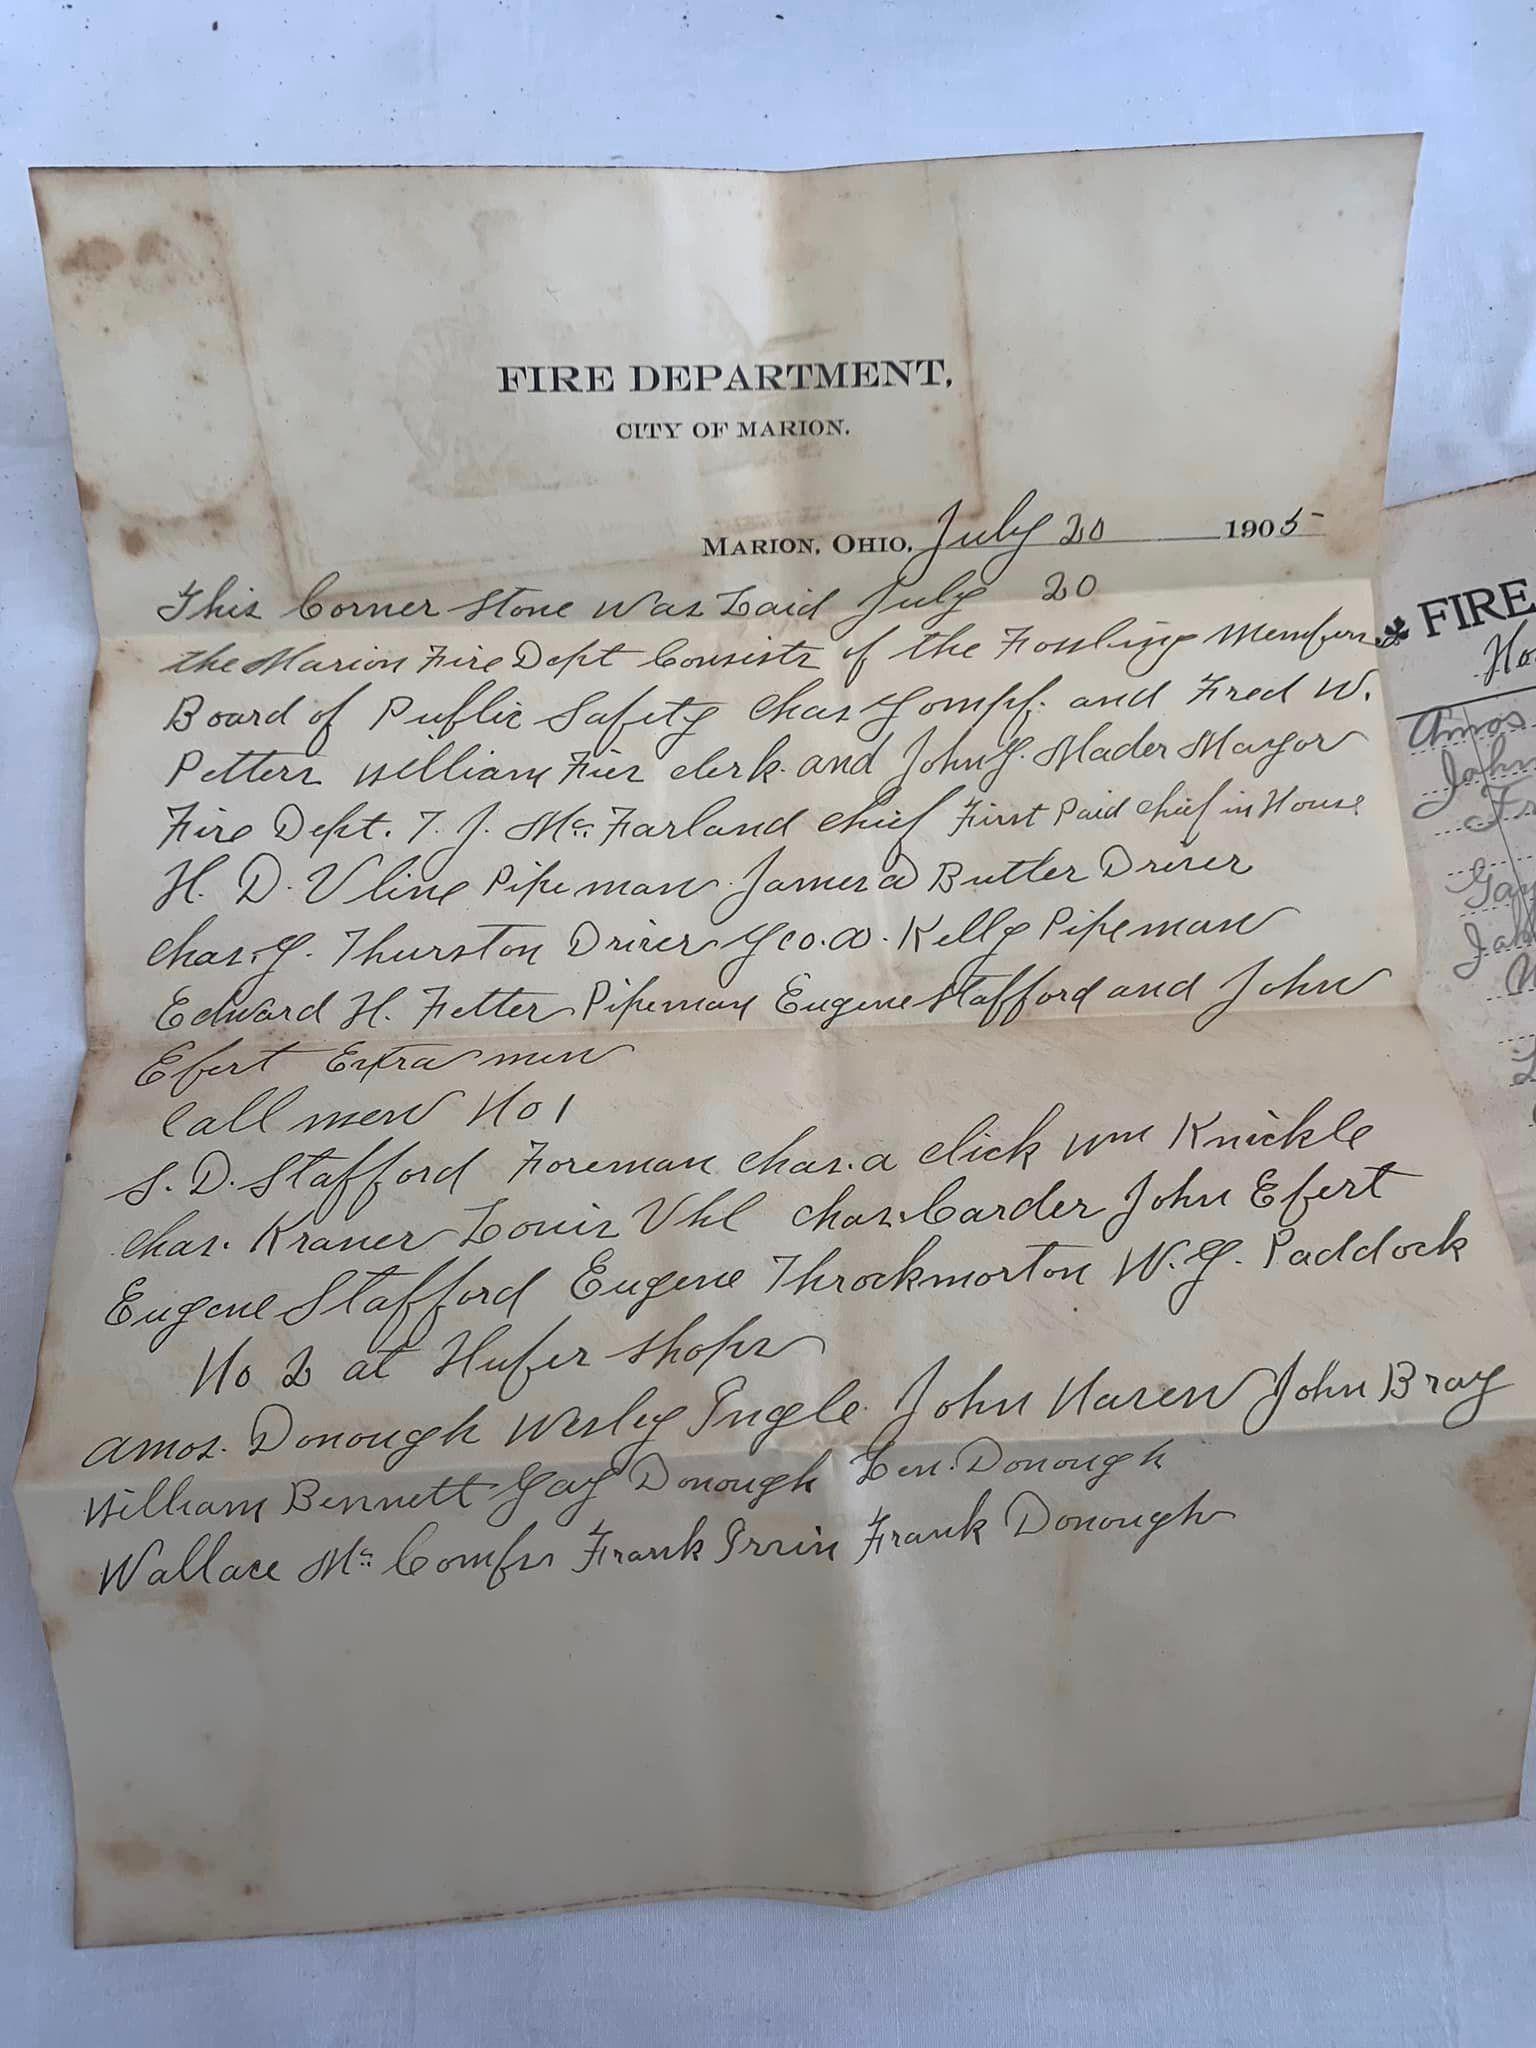 FIRE DEPARTMENT,
CITY OF MARION.
MARION, OHIO, July 20 1905
This Corner Stone Was Laid July 20
the Marion Fire Dept Consists of the Members
Board of Public Safety Chas Gompf. and Fred W.
Petters William Fies clerk. and John G. Mader Mayor
Fire Dept. T. J. Mc. Farland chief First Paid chief in House
H. D. Uline Pipe man. James a Butler Driver
Chas. G. Thurston Driver Geo. a. Kelly Pipeman
Edward H. Fetter Pipeman Eugene Stafford and John
Ebert Extra men
Call men No 1
S. D. Stafford Foreman Chas. a Click Wm Knickle
Chas. Kraner Louis Uhl Chas. Carder John Ebert
Eugene Stafford Eugene Throckmorton W. G. Paddock
No 2 at Hufer Shops
Amos. Donough Wesley Ingle. John John Bray
William Bennett Gay Donough Len. Donough
Wallace Mc. Combs Frank Irvin Frank Donough
FIRE
Amos
John
Gay